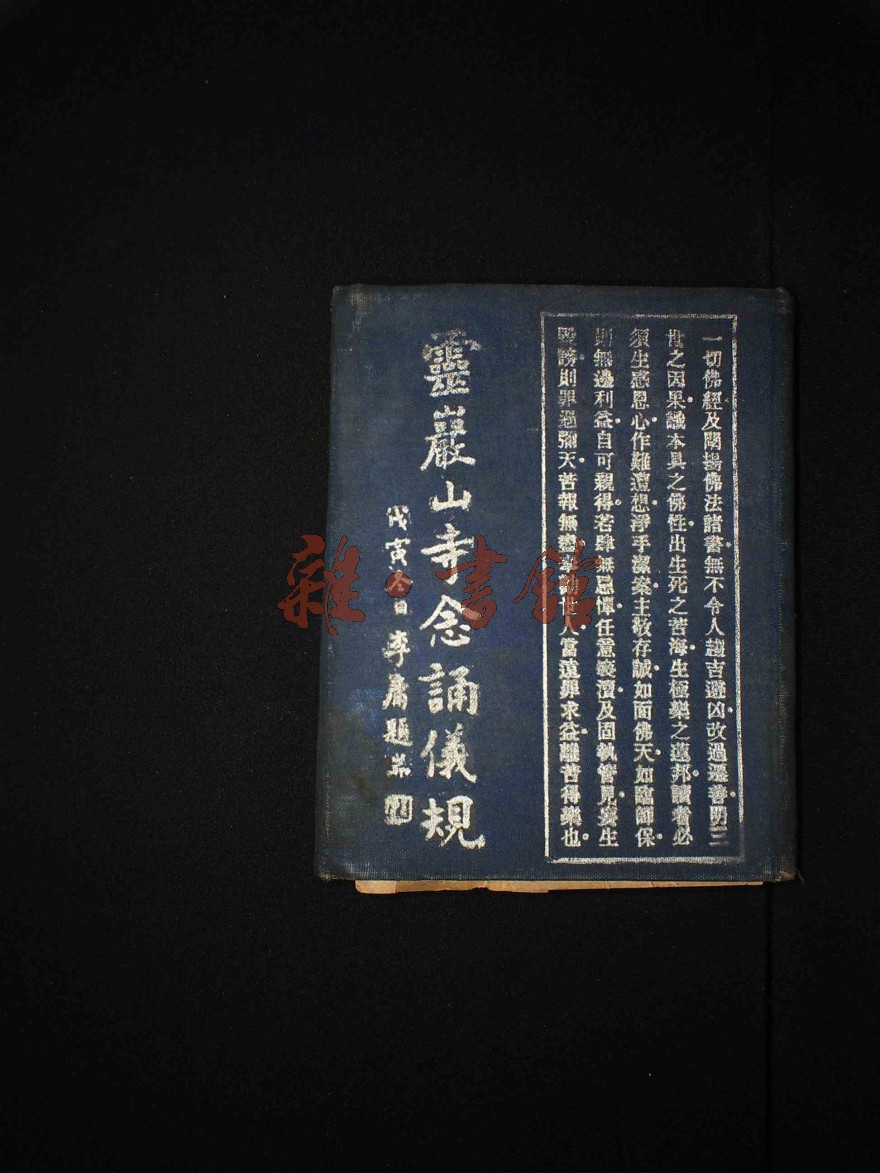 一切佛經及闡揚佛法諸書。無不令人趨吉避凶。改過遷善。明三
世之因果。識本具之佛性。出生死之苦海。生極樂之蓮邦。讀者必
須生感恩心。作難遭想。淨手潔案。主敬存誠。如面佛天。如臨師保。
則無邊利益。自可親得。若肆無忌憚。任意褻瀆。及固執管見。妄生
毀謗。則罪過彌天。苦報無盡。奉勸世人。當遠罪求益。離苦得樂也。
靈巖山寺念誦儀規
戊寅冬日 李廌題耑
雜·書館